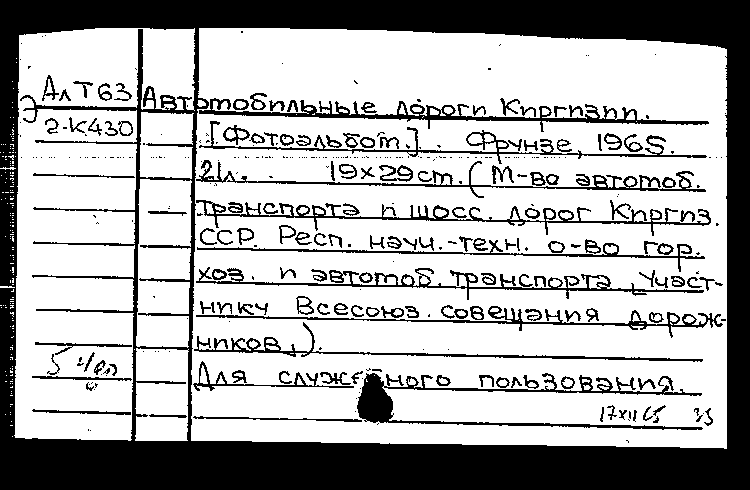 АлТ63 Автомобильные дороги Киргизии.
Э
2-К430 [Фотоальбом.]. Фрунзе, 1965.
21л. 19х29см. (М-во автомоб.
транспорта и шосс. дорог Киргиз.
ССР. Респ. науч.-техн. о-во гор.
хоз. и автомоб. транспорта. Участ-
нику Всесоюз. совещания дорож-
ников.).
Для служебного пользования.
17 XII 65